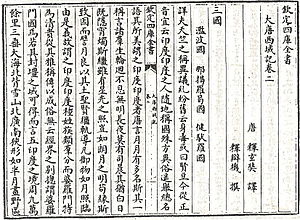 欽定四庫全書
大唐西域記卷二
唐 釋玄奘 譯
釋辯機 撰
三國
濫波國 那揭羅曷國 健馱羅國
詳夫天竺之稱異議糾紛舊云身毒或曰賢豆今從正
音宜云印度印度之人隨地稱國殊方異俗遙舉總名
語其所美謂之印度印度者唐言月月有多名斯其一
欽定四庫全書
稱言諸羣生輪迴不息無明長夜莫有司晨其猶白日
既隱宵燭斯繼雖有星光之照豈如朗月之明苟緣斯
致因而譬月良以其土聖賢繼軌導凡御物如月照臨
由是義故謂之印度印度種姓族類羣分而婆羅門特
為清貴從其雅稱傳以成俗無云經界之別總謂婆羅
門國焉若其封疆之域可得而言五印度之境周九萬
餘里三垂大海北背雪山北廣南狹形如半月畫野區